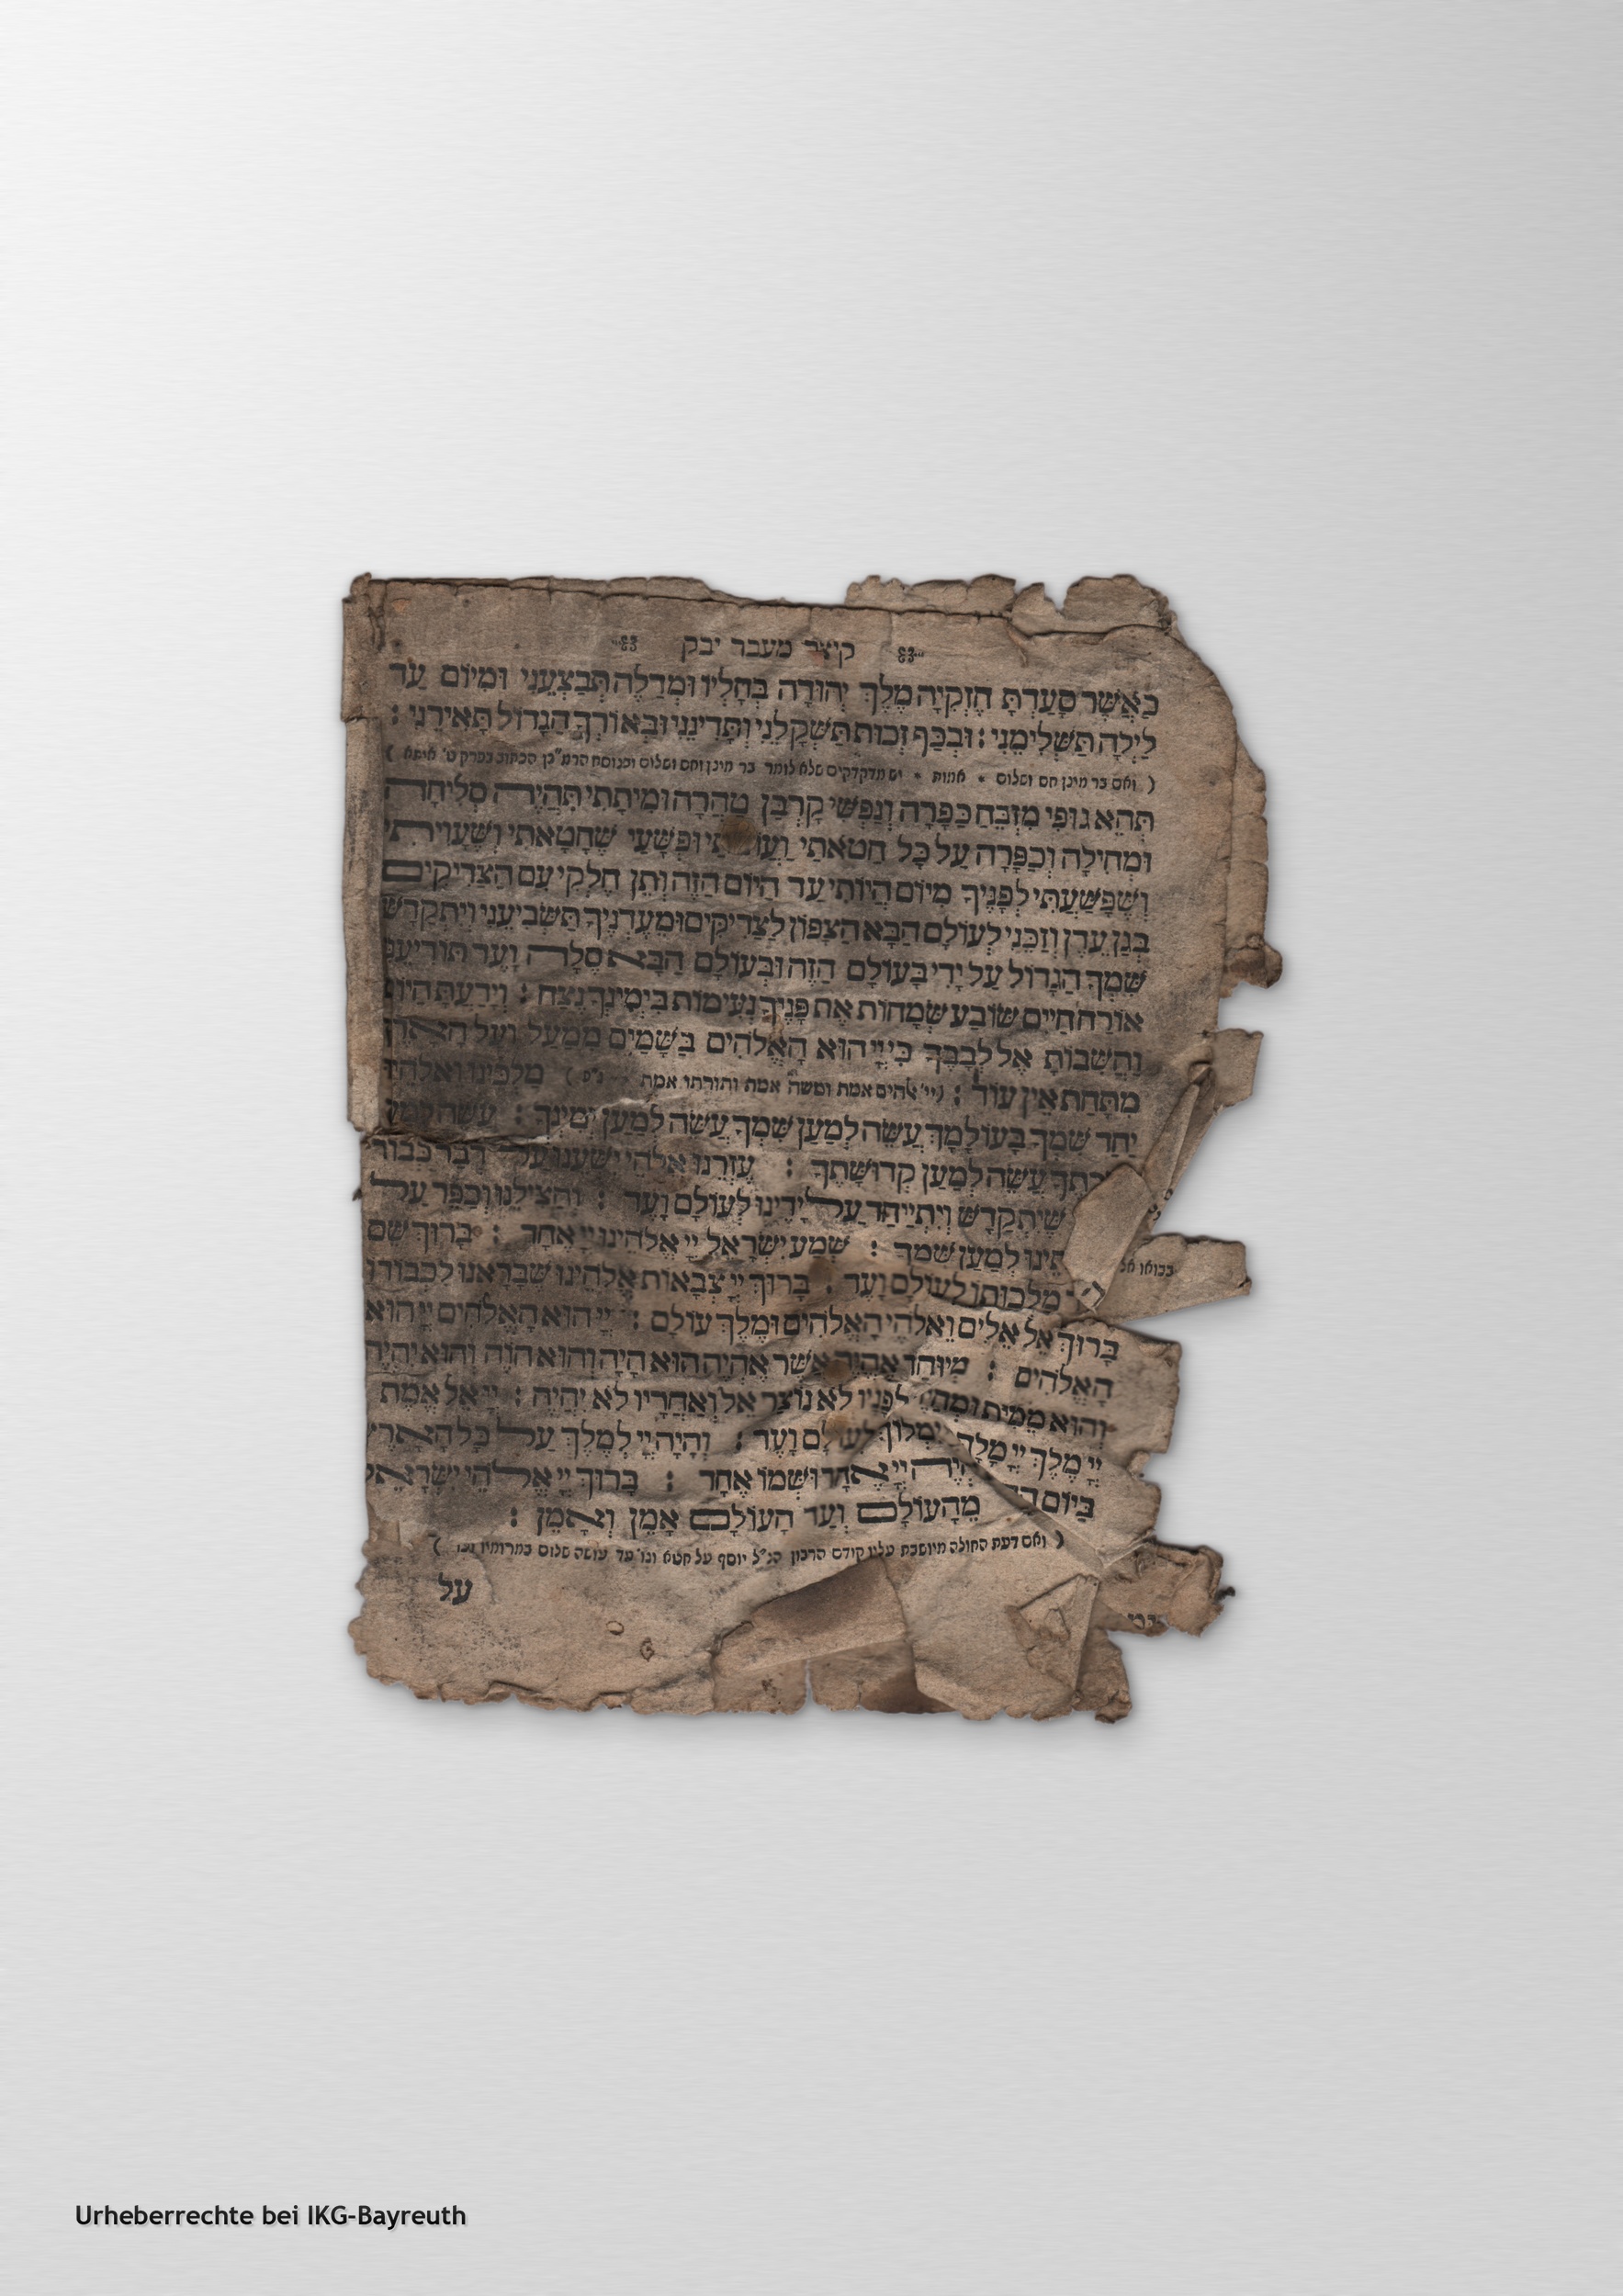 קיצור מעבר יבק
כַּאֲשֶׁר סָעַדְתָּ חִזְקִיָּה מֶלֶךְ יְהוּדָה בְּחָלְיוֹ וּמִדַּלָּה תְּבַצְּעֵנִי וּמִיּוֹם עַד
לַיְלָה תַּשְׁלִימֵנִי : וּבְכַף זְכוּת תַּשְׁקְלֵנִי וּתְדִינֵנִי וּבְאוֹרְךָ הַגָּדוֹל תְּאִירֵנִי :
( ואם בר מינן חס ושלום * אמות * יש מדקדקים שלא לומר בר מינן וחס ושלום וכנוסח הרמ"בן הכתוב בפרק ט' איתא )
תְּהֵא גוּפִי מִזְבֵּחַ כַּפָּרָה וְנַפְשִׁי קָרְבַּן טָהֳרָה וּמִיתָתִי תְּהֵי סְלִיחָה
וּמְחִילָה וְכַפָּרָה עַל כָּל חַטֹּאתַי וּפְשָׁעַי שֶׁחָטָאתִי וְשֶׁעָוִיתִי
וְשֶׁפָּשַׁעְתִּי לְפָנֶיךָ מִיּוֹם הֱיוֹתִי עַד הַיּוֹם הַזֶּה וְתֵן חֶלְקִי עִם הַצַּדִּיקִים
בְּגַן עֵדֶן וְזַכֵּנִי לְעוֹלָם הַבָּא הַצָּפוּן לַצַּדִּיקִים וּמֵעֲדָנֶיךָ תַּשְׂבִּיעֵנִי וְיִתְקַדֵּשׁ
שִׁמְךָ הַגָּדוֹל עַל יָדִי בָּעוֹלָם הַזֶּה וּבָעוֹלָם הַבָּא סֶלָה וָעֶד
אוֹרַח חַיִּים שׂוֹבַע שְׂמָחוֹת אֶת פָּנֶיךָ נְעִימוֹת בִּימִינְךָ נֶצַח : וְיָדַעְתָּ הַיּוֹם
וַהֲשֵׁבוֹתָ אֶל לְבָבֶךָ כִּי יְיָ הוּא הָאֱלֹהִים בַּשָּׁמַיִם מִמַּעַל וְעַל הָאָרֶץ
מִתַּחַת אֵין עוֹד : ( יי' אלהים אמת ומשה אמת ותורתו אמת ) מַלְכֵּינוּ וֵאלֹהֵינוּ
יַחֵד שִׁמְךָ בְּעוֹלָמֶךָ עֲשֵׂה לְמַעַן שְׁמֶךָ עֲשֵׂה לְמַעַן יְמִינֶךָ : עֲשֵׂה לְמַעַן
עֲשֵׂה לְמַעַן קְדוּשָּׁתֶךָ : עָזְרֵנוּ אֱלֹהֵי יִשְׁעֵנוּ עַל דְּבַר כְּבוֹד
שֶׁיִּתְקַדֵּשׁ וְיִתְיַיחֵד עַל יָדֵינוּ לְעוֹלָם וָעֶד : וְהַצִּילֵנוּ וְכַפֵּר עַל
לְמַעַן שְׁמֶךָ : שְׁמַע יִשְׂרָאֵל יְיָ אֱלֹהֵינוּ יְיָ אֶחָד : בָּרוּךְ שֵׁם
מַלְכוּתוֹ לְעוֹלָם וָעֶד : בָּרוּךְ יְיָ צְבָאוֹת אֱלֹהֵינוּ שֶׁבְּרָאָנוּ לִכְבוֹדוֹ
בָּרוּךְ אֵל אֵלִים וֵאלֹהֵי הָאֱלֹהִים וּמֶלֶךְ עוֹלָם : יְיָ הוּא הָאֱלֹהִים יְיָ הוּא
הָאֱלֹהִים : מְיוּחָד אֶהְיֶה אֲשֶׁר אֶהְיֶה הוּא הָיָה וְהוּא הֹוֶה וְהוּא יִהְיֶה
וְהוּא מֵמִית וּמְחַיֶּה לְפָנָיו לֹא נוֹצַר אֵל וְאַחֲרָיו לֹא יִהְיֶה : יְיָ אֵל אֱמֶת
יְיָ מֶלֶךְ יְיָ מָלָךְ יִמְלוֹךְ לְעוֹלָם וָעֶד : וְהָיָה יְיָ לְמֶלֶךְ עַל כָּל הָאָרֶץ
בַּיּוֹם יִהְיֶה יְיָ אֶחָד וּשְׁמוֹ אֶחָד : בָּרוּךְ יְיָ אֱלֹהֵי יִשְׂרָאֵל
מֵהָעוֹלָם וְעַד הָעוֹלָם אָמֵן וְאָמֵן :
( ואם דעת החולה מיושבת עליו קודם הרבון הנ"ל יוסף על חטא וכו' עד עושה שלום במרומיו )
על
Urheberrechte bei IKG-Bayreuth